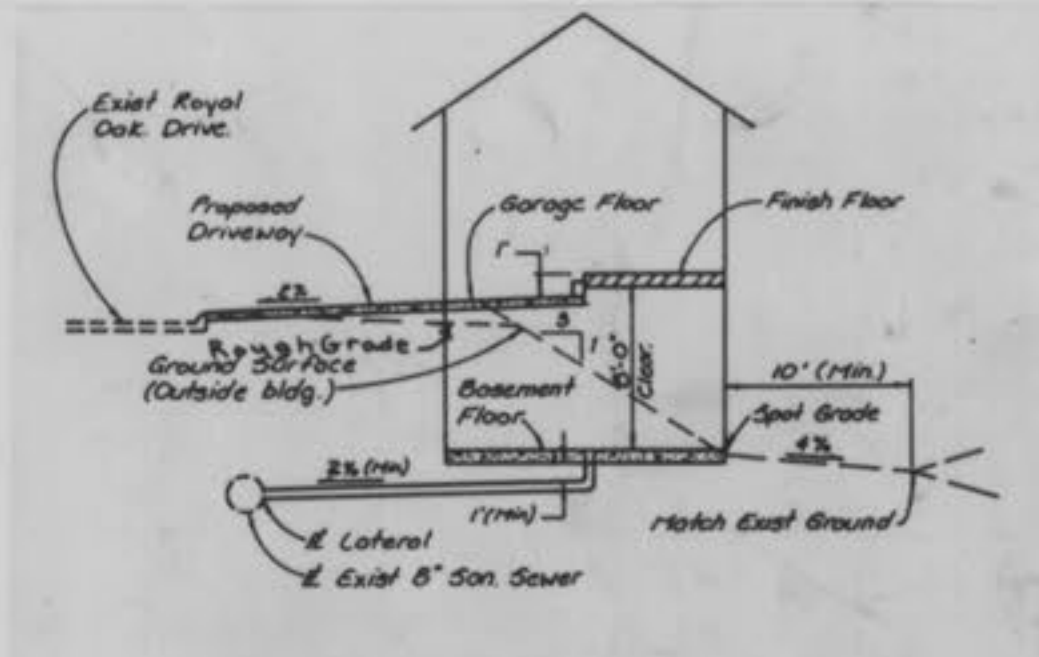 Exist Royal
Oak Drive.
Proposed
Driveway
Garage Floor
Finish Floor
1'
2%
3
1
Rough Grade
Ground Surface
(Outside bldg.)
8'-0"
Clear.
Basement
Floor
10' (Min.)
Spot Grade
4%
2% (Min)
1' (Min)
Match Exist Ground
℄ Lateral
℄ Exist 8" San. Sewer